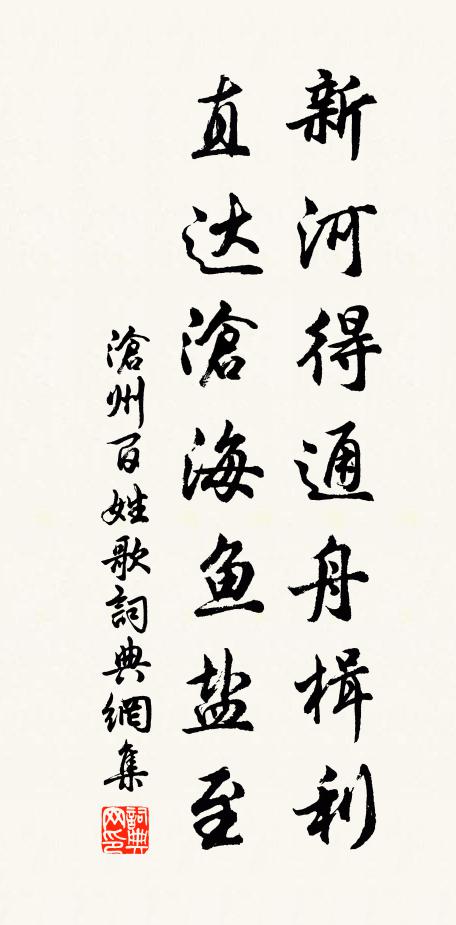 新河得通舟楫利
直达滄海鱼盐至
滄州百姓歌詞典網集
詞典网印